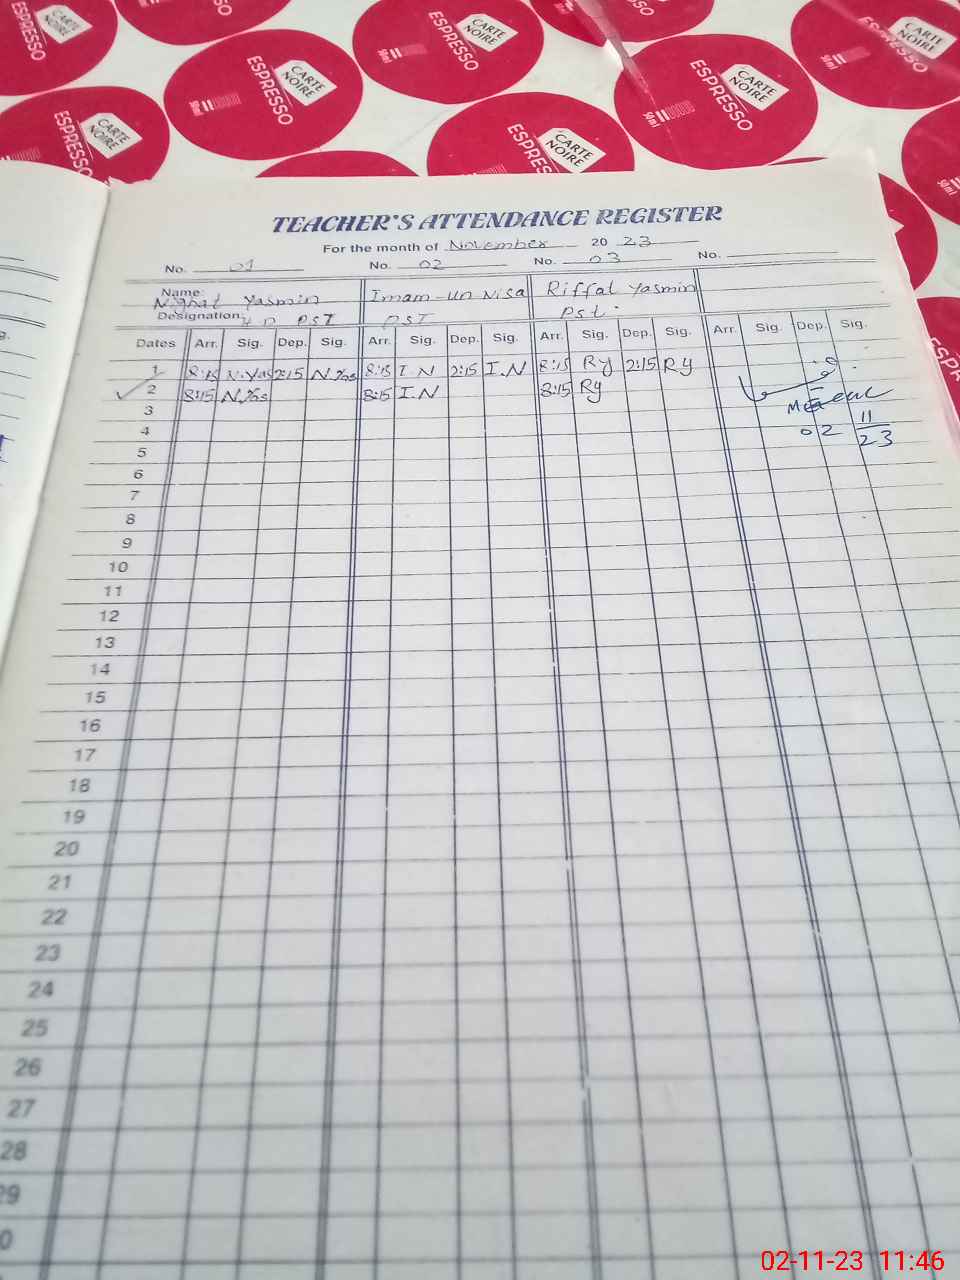 CARTE NOIRE
ESPRESSO
CARTE NOIRE
ESPRESSO
ESPRESSO
CARTE NOIRE
ESPRESSO
CARTE NOIRE
ESPRESSO
CARTE NOIRE
50ml
ESPRESSO
CARTE NOIRE
ESPRESSO
CARTE NOIRE
50ml
TEACHER'S ATTENDANCE REGISTER
For the month of November 20 23
No. 01 No. 02 No. 03 No.
Name: Nighat Yasmin Imam-un Nisa Riffat Yasmin
Designation: PST PST Pst.
Dates Arr. Sig. Dep. Sig. Arr. Sig. Dep. Sig. Arr. Sig. Dep. Sig. Arr. Sig. Dep. Sig.
1 8:15 N.Yas 2:15 N.Yas 8:15 I.N 2:15 I.N 8:15 Ry 2:15 Ry
2 8:15 N.Yas 8:15 I.N 8:15 Ry
3
4 02 11
5 23
6
7
8
9
10
11
12
13
14
15
16
17
18
19
20
21
22
23
24
25
26
27
28
29
02-11-23 11:46